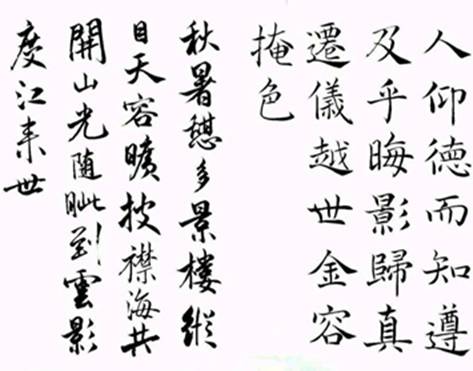 人仰德而知遵
及乎晦影歸真
遷儀越世金容
掩色
秋暑憩多景樓縱
目天容曠披襟海共
開山光随眺到雲影
度江来世